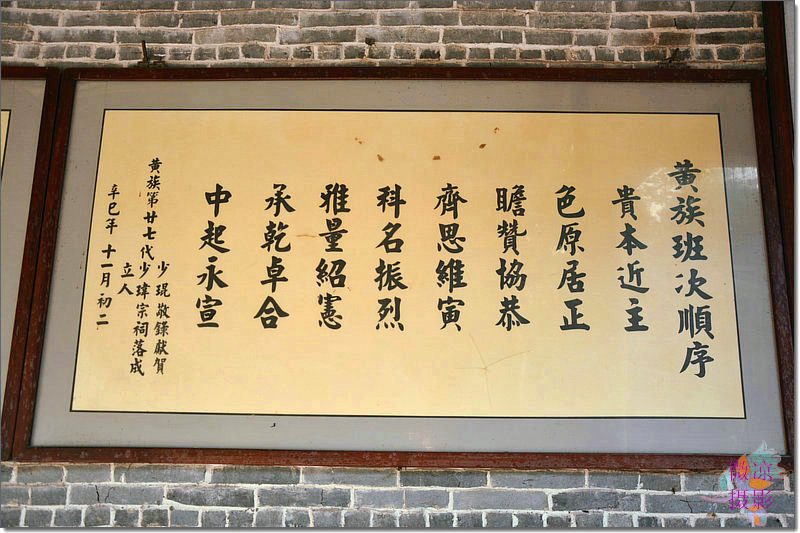 黄族班次順序
貴本近主
色原居正
瞻贊協恭
齊思維寅
科名振烈
雅量紹憲
承乾卓合
中起永宣
黄族第廿七代少琨敬錄獻賀
少瑋宗祠落成
立人
辛巳年十一月初二
摄影